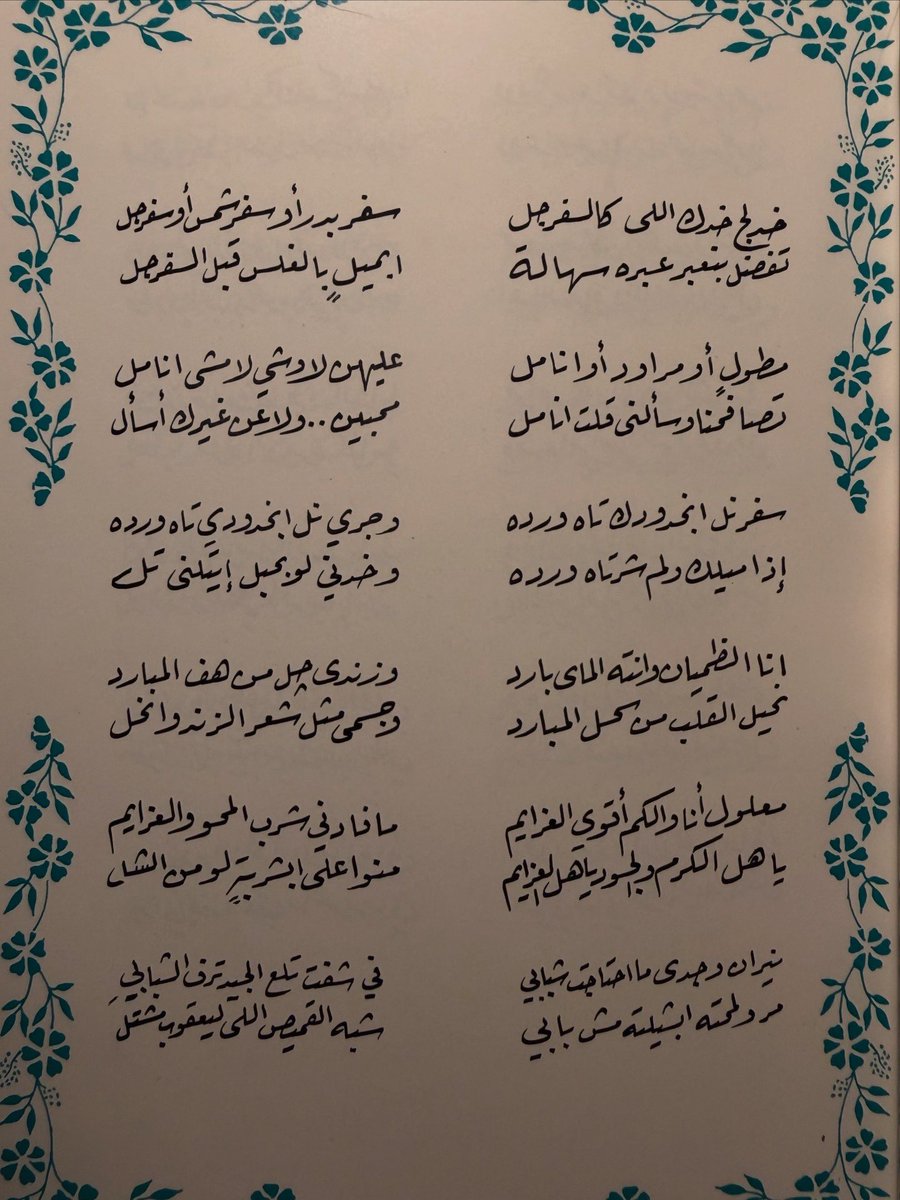 خدلج خدك اللى كالسفرجل سفر بدر أو سفر شمس أو سفرجل
تفضل بتعبر عبره سهالة ابميلٍ بالغلس قبل السفرجل
مطولٍ أو مراود أو انامل عليهن لا وشي لا مشى انامل
تصافحنا وسألنى قلت انامل محبين .. ولا عن غيرك أسأل
سفر نل ابخدودك تاه ورده وجري نل ابخدودي تاه ورده
إذا ميلك ولم شرتاه ورده وخدني لو بحبل إيتلنى تل
انا الظميان وانته الماى بارد وزندى چل من هف المبارد
نحيل القلب من سحل المبارد وجسمى مثل شعر الزند وانحل
معلول أنا والكم أقوي العزايم ما فادني شرب المحو والعزايم
يا هل الكرم والجود يا هل العزايم منوا على ابشربةٍ لو من الشل
نيران وجدى ما احتاجت شبابي في شفت تلع الجيد ترف الشبابي
مر ولمته ابشيلته مش بابي شبه القميص اللى ليعقوب مشتل